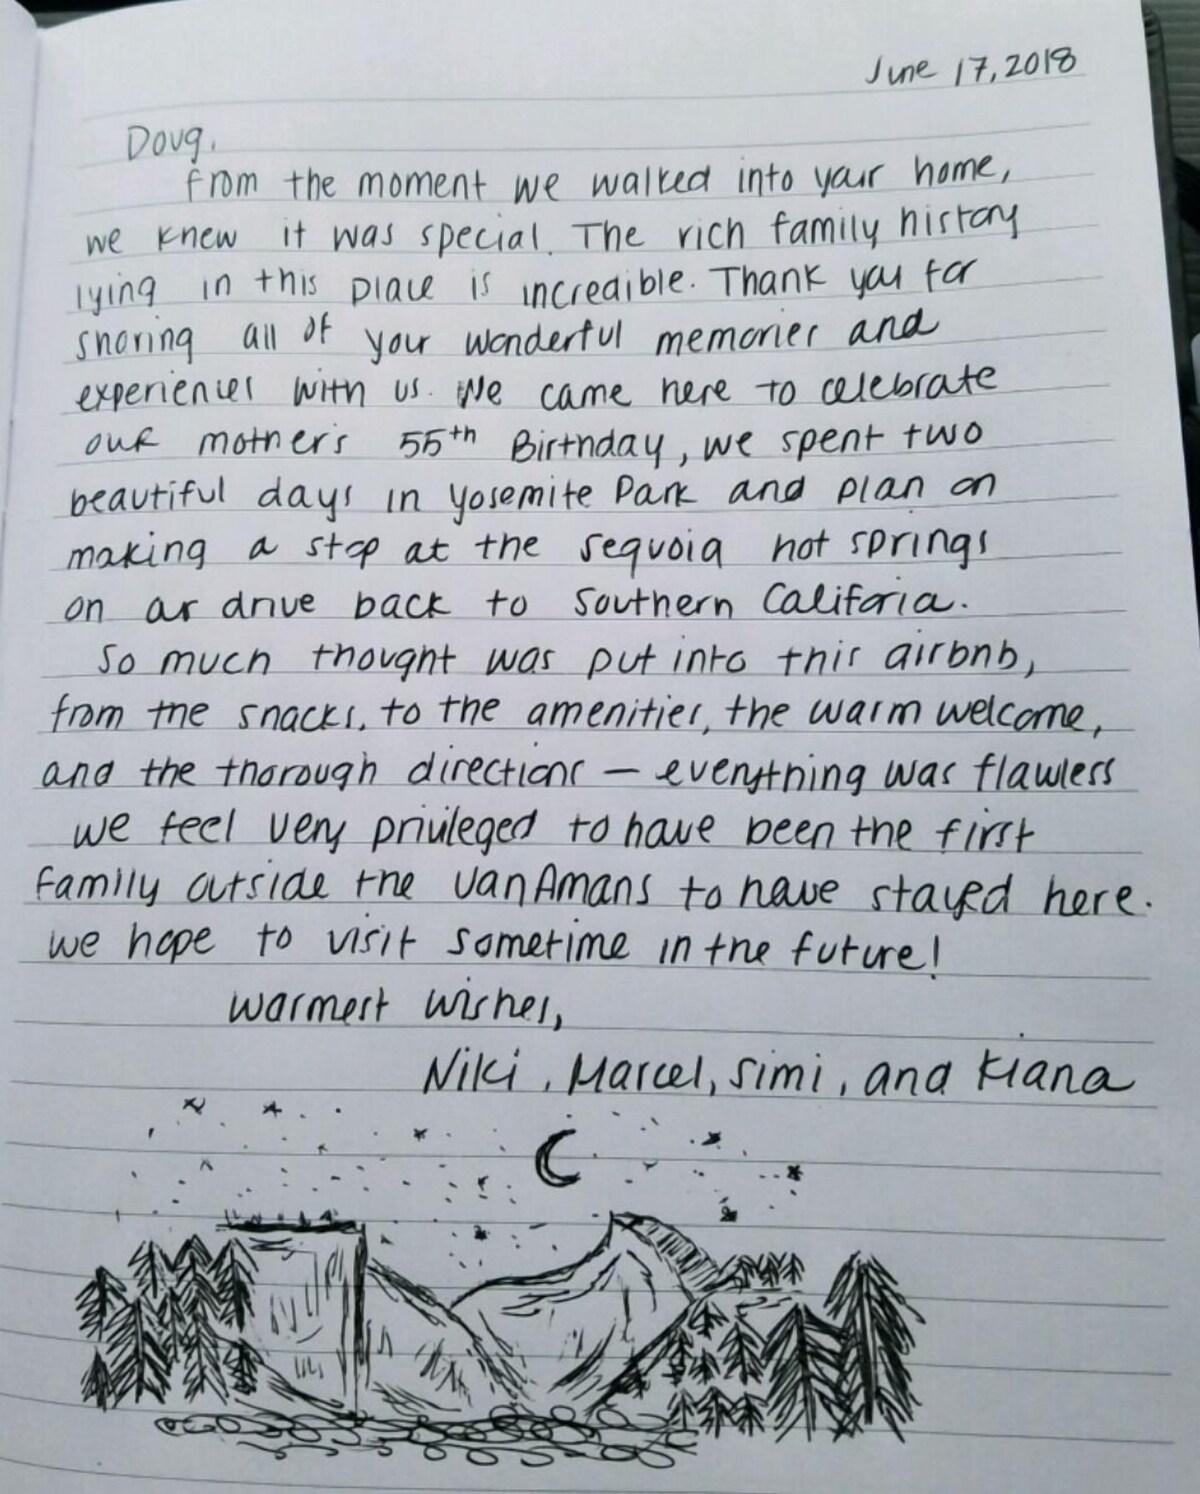 June 17, 2018
Doug,
from the moment we walked into your home,
we knew it was special. The rich family history
lying in this place is incredible. Thank you for
sharing all of your wonderful memories and
experiences with us. We came here to celebrate
our mother's 55th Birthday, we spent two
beautiful days in Yosemite Park and plan on
making a stop at the sequoia hot springs
on our drive back to Southern Califoria.
So much thought was put into this airbnb,
from the snacks, to the amenities, the warm welcome,
and the thorough directions — everything was flawless
we feel very privileged to have been the first
family outside the VanAmans to have stayed here.
we hope to visit sometime in the future!
Warmest wishes,
Niki, Marcel, Simi, and Kiana